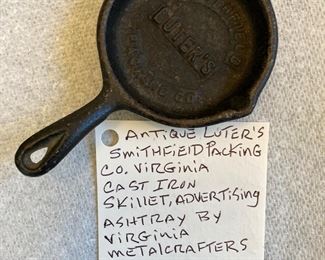 SMITHFIELD
LUTER'S
PACKING CO.
ANTIQUE LUTER'S
SMITHFIELD PACKING
CO. VIRGINIA
CAST IRON
SKILLET, ADVERTISING
ASHTRAY BY
VIRGINIA
METALCRAFTERS